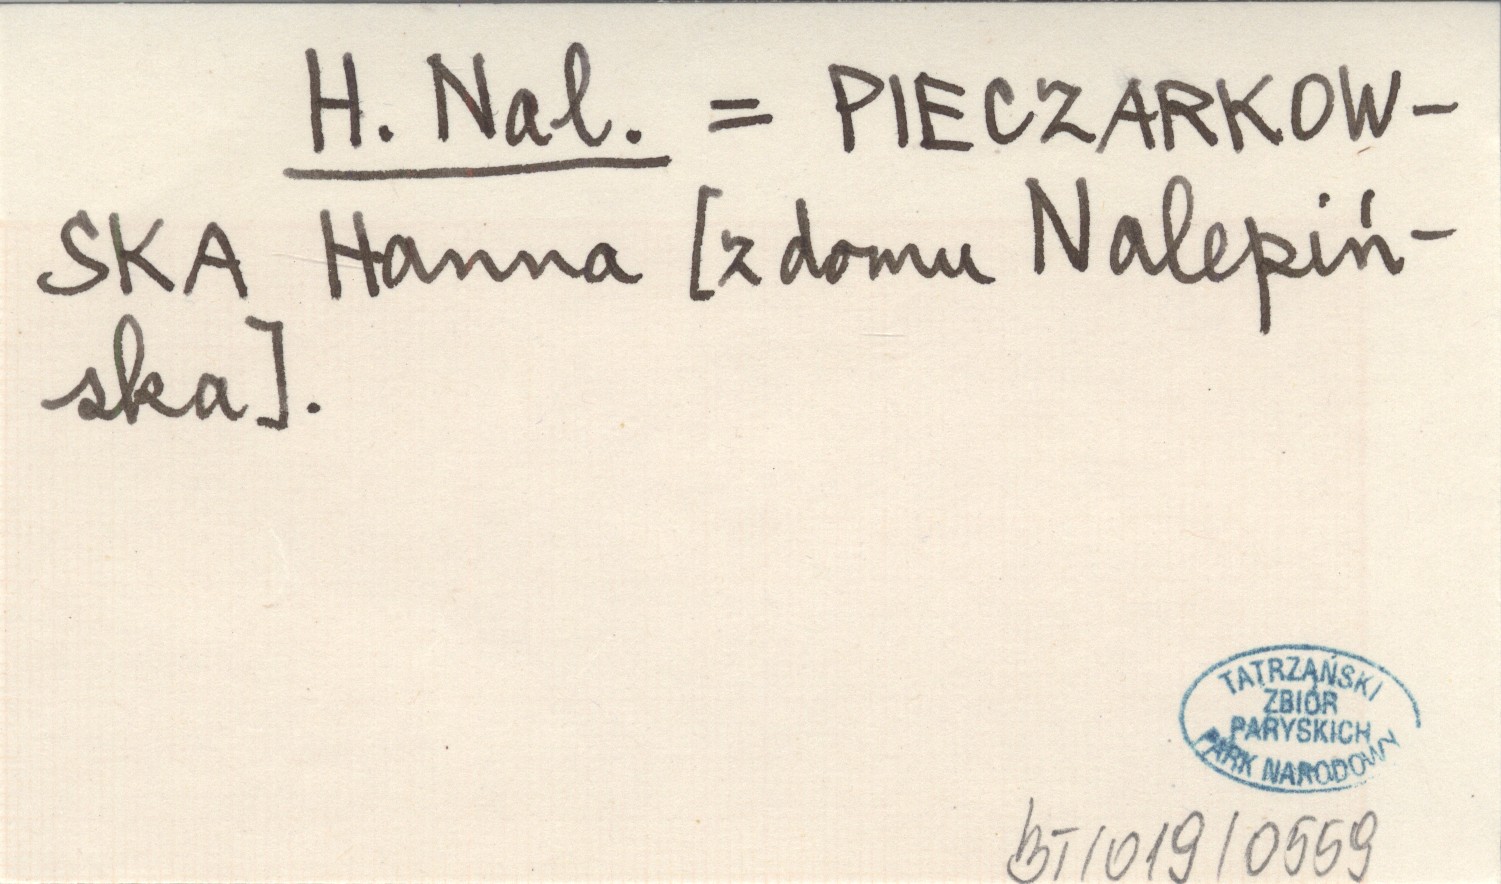 H. Nal. = PIECZARKOW-
SKA Hanna [z domu Nalepiń-
ska].
TATRZAŃSKI
ZBIÓR
PARYSKICH
PARK NARODOWY
BT/019/0559